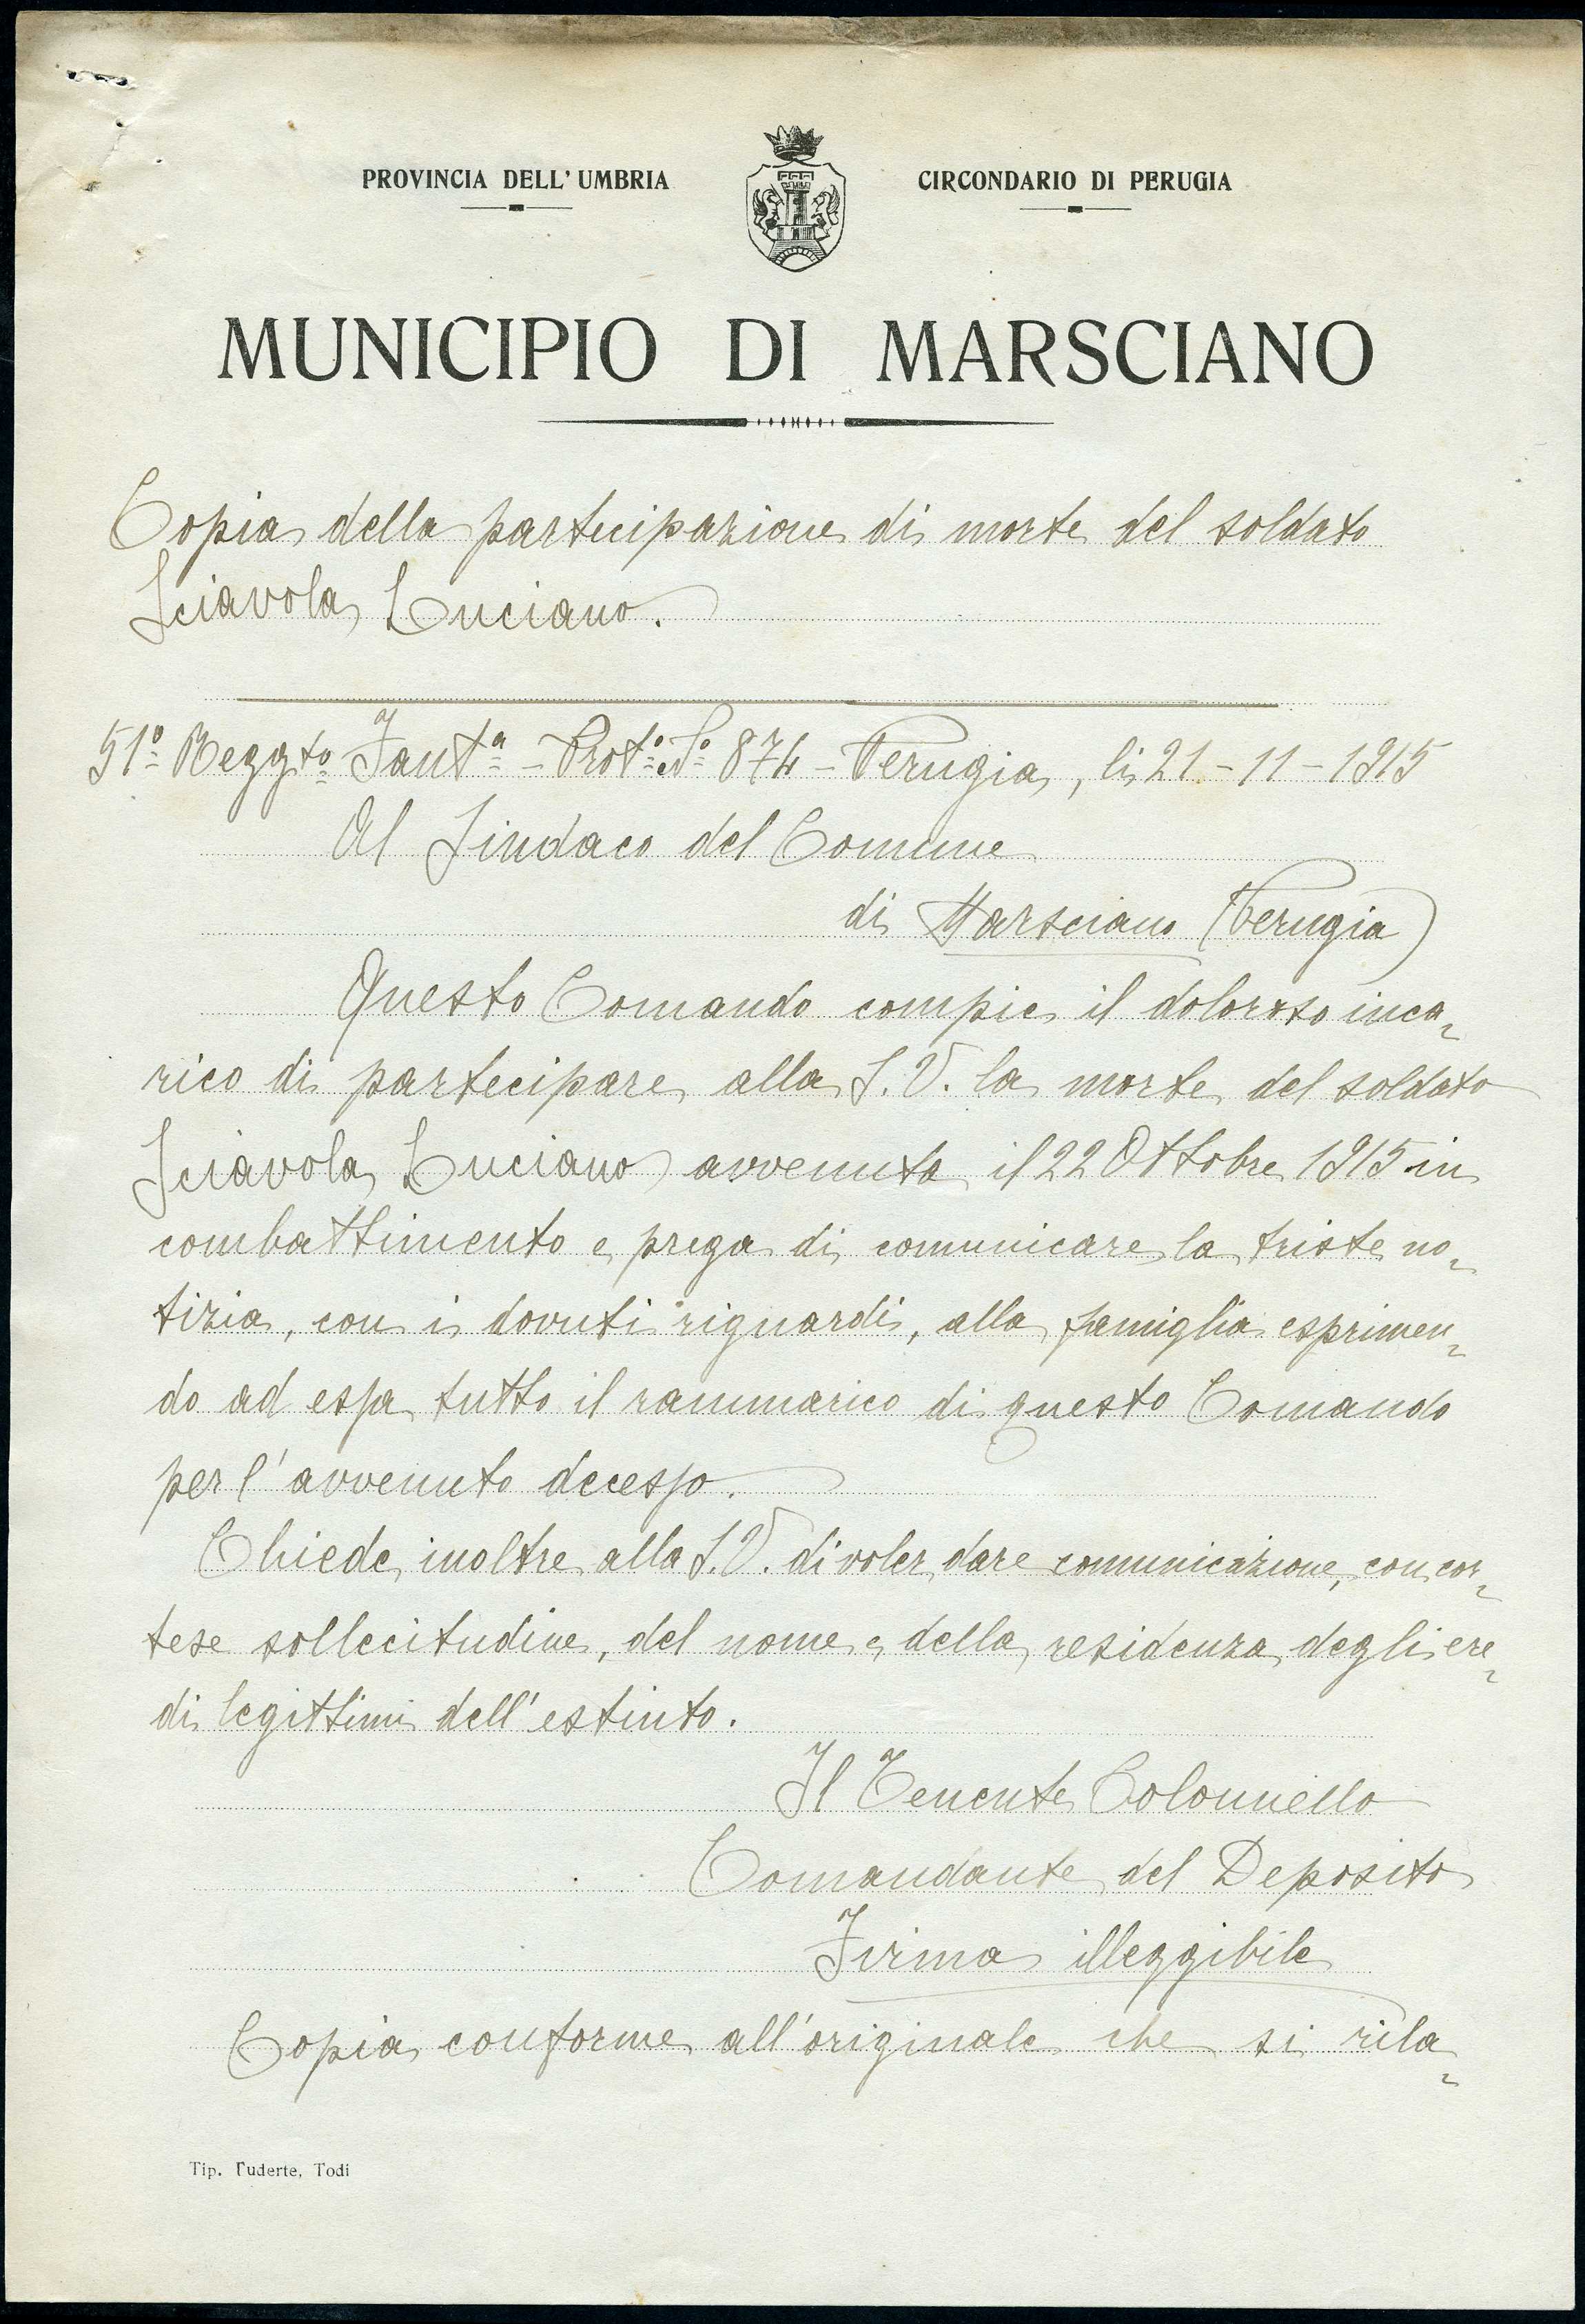 PROVINCIA DELL'UMBRIA
CIRCONDARIO DI PERUGIA
MUNICIPIO DI MARSCIANO
Copia della partecipazione di morte del soldato
Sciavola Luciano.
51º Reggto Fantª - Protº Nº 874 - Perugia, li 21-11-1915
Al Sindaco del Comune
di Marsciano (Perugia)
Questo Comando compie il doloroso inca-
rico di partecipare alla S.V. la morte del soldato
Sciavola Luciano avvenuta il 22 Ottobre 1915 in
combattimento e prega di comunicare la triste no-
tizia, con i dovuti riguardi, alla famiglia esprimen-
do ad essa tutto il rammarico di questo Comando
per l'avvenuto decesso.
Chiede inoltre alla S.V. di voler dare comunicazione, con cor-
tese sollecitudine, del nome e della residenza degli ere-
di legittimi dell'estinto.
Il Tenente Colonnello
Comandante del Deposito
Firma illeggibile
Copia conforme all'originale che si rila-
Tip. Tuderte, Todi